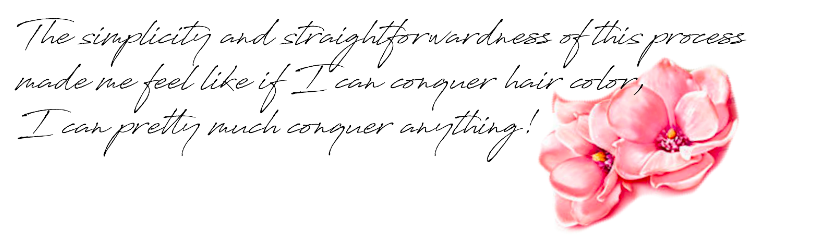 The simplicity and straightforwardness of this process
made me feel like if I can conquer hair color,
I can pretty much conquer anything!